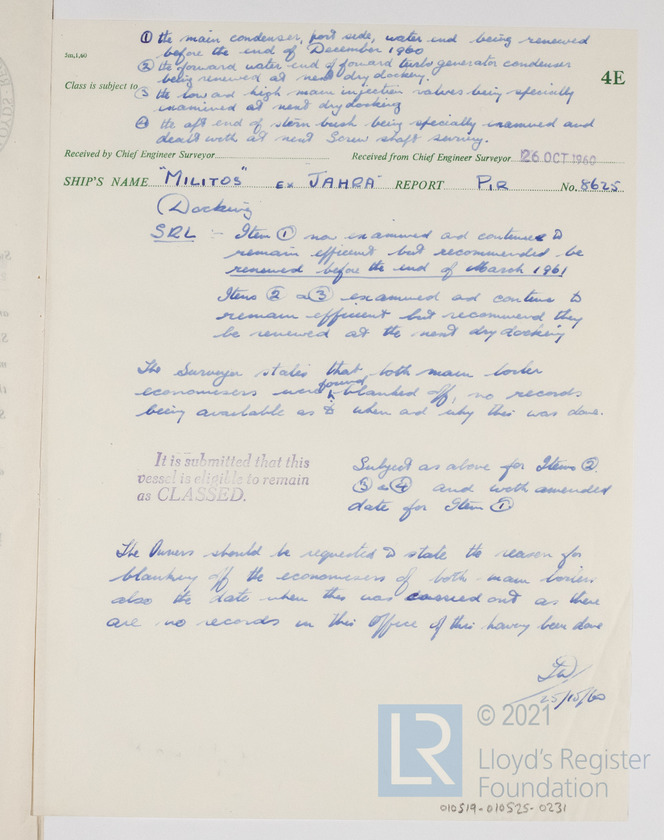 ① the main condenser, port side, water end being renewed
before the end of December 1960
2m,1,60
② the forward water end of forward turbo generator condenser
being renewed at next dry docking.
4E
Class is subject to
③ the low and high main injection valves being specially
examined at next drydocking
④ the aft end of stern bush being specially examined and
dealt with at next Screw shaft survey.
Received by Chief Engineer Surveyor
Received from Chief Engineer Surveyor 26 OCT 1960
SHIP'S NAME "MILITOS" EX JAHRA REPORT PIR No. 8625
(Docking
SRL :- Item ① now examined and continues to
remain efficient but recommended be
renewed before the end of March 1961
Items ② & ③ examined and continue to
remain efficient but recommend they
be renewed at the next drydocking
The Surveyor states that both main boiler
economisers were found blanked off, no records
being available as to when and why this was done.
It is submitted that this
vessel is eligible to remain
as CLASSED.
Subject as above for Items ②
③ & ④ and with amended
date for Item ①
The Owners should be requested to state the reason for
blanking off the economisers of both main boilers
also the date when this was carried out as there
are no records in this Office of this having been done
25/10/60
LR
© 2021
Lloyd's Register
Foundation
010519-010525-0231